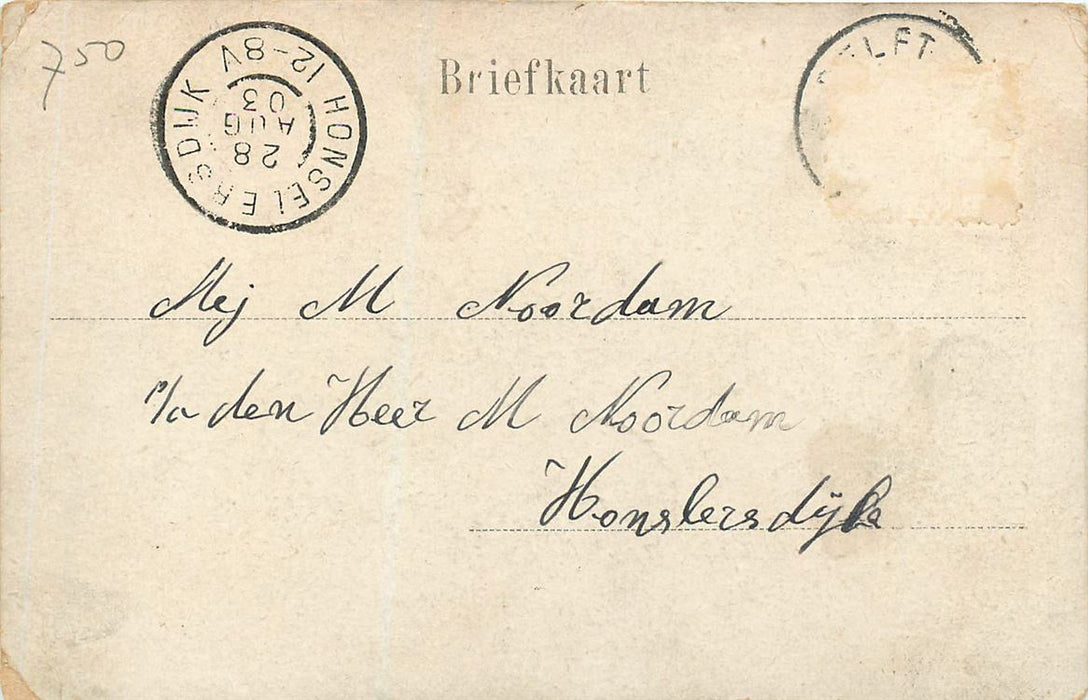 750
HONSELERSDIJK
12-8V
28
AUG
03
Briefkaart
DELFT
Mej M Noordam
p/a den Heer M Noordam
Honslersdijk